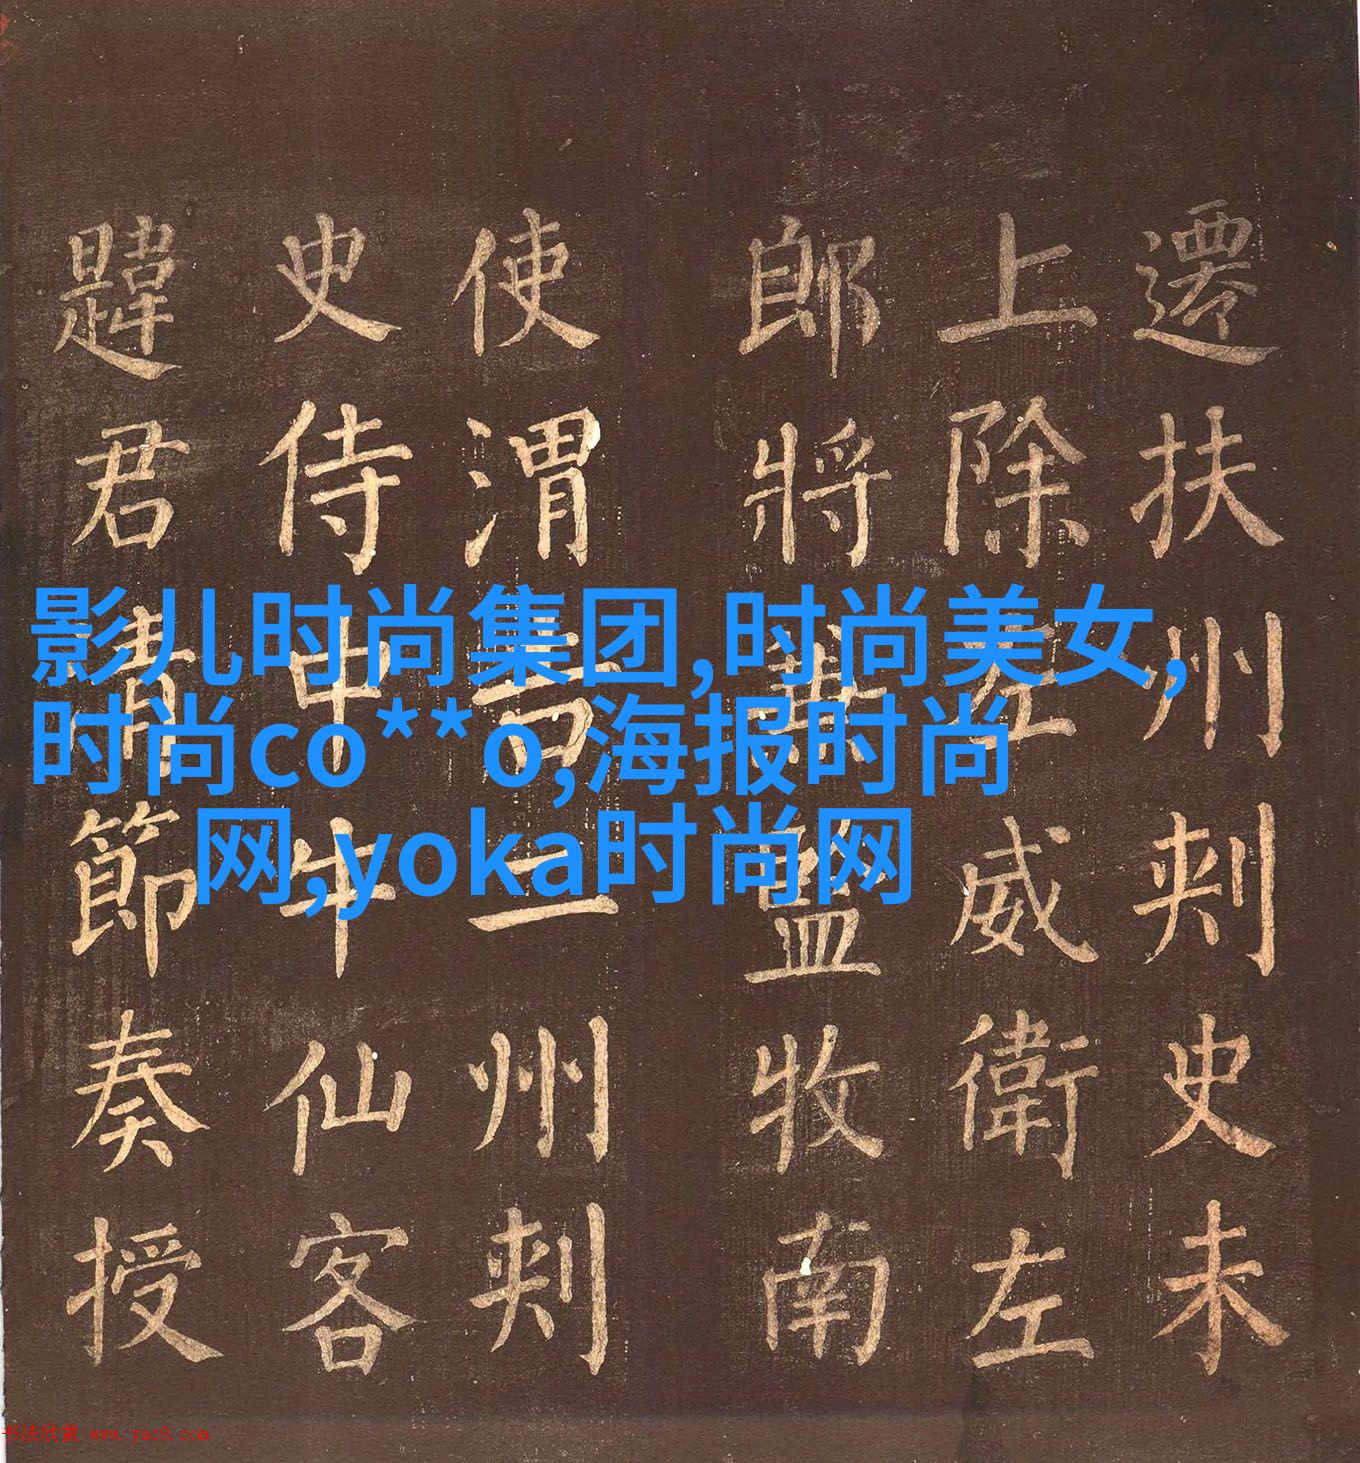 遷扶州刾史未
上除左威衛左
郎將兼監牧南
使渭二州刾
史侍中牛仙客
韙君清節奏授
影儿时尚集团,时尚美女,
时尚co**o,海报时尚
网,yoka时尚网
书法欣赏 www.yac8.com